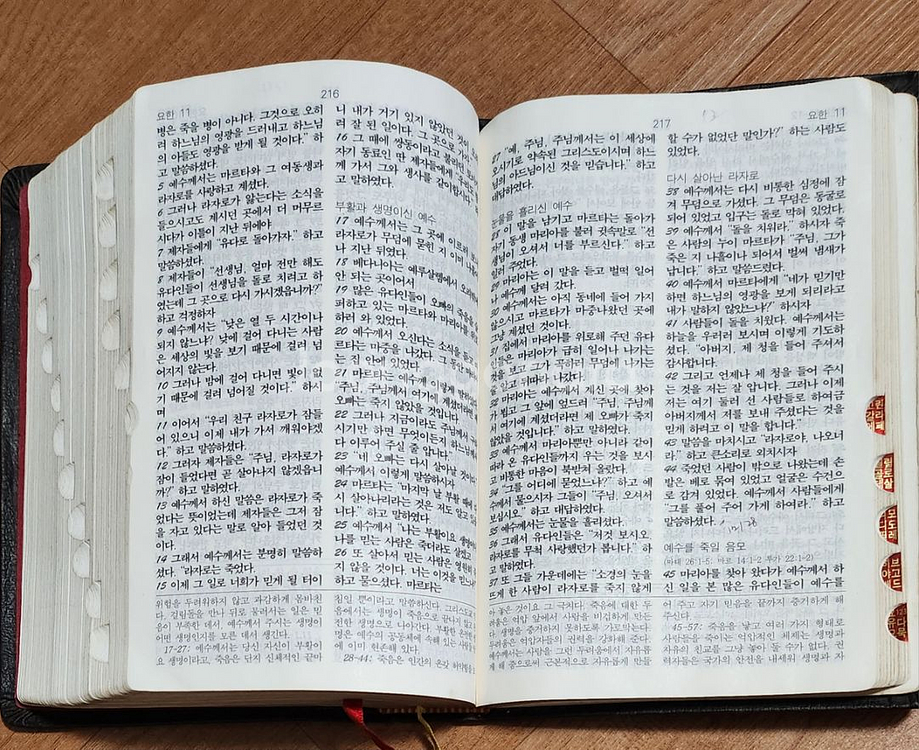 요한 11
216
병은 죽을 병이 아니다. 그것으로 오히
려 하느님의 영광을 드러내고 하느님
의 아들도 영광을 받게 될 것이다." 하
고 말씀하셨다.
5 예수께서는 마르타와 그 여동생과
라자로를 사랑하고 계셨다.
6 그러나 라자로가 앓는다는 소식을
들으시고도 계시던 곳에서 더 머무르
시다가 이틀이 지난 뒤에야
7 제자들에게 "유다로 돌아가자." 하고
말씀하셨다.
8 제자들이 "선생님, 얼마 전만 해도
유다인들이 선생님을 돌로 치려고 하
였는데 그 곳으로 다시 가시겠습니까?"
하고 걱정하자
9 예수께서는 "낮은 열 두 시간이나
되지 않느냐? 낮에 걸어 다니는 사람
은 세상의 빛을 보기 때문에 걸려 넘
어지지 않는다.
10 그러나 밤에 걸어 다니면 빛이 없
기 때문에 걸려 넘어질 것이다." 하시
며
11 이어서 "우리 친구 라자로가 잠들
어 있으니 이제 내가 가서 깨워야겠
다." 하고 말씀하셨다.
12 그러자 제자들은 "주님, 라자로가
잠이 들었다면 곧 살아나지 않겠습니
까?" 하고 말하였다.
13 예수께서 하신 말씀은 라자로가 죽
었다는 뜻이었는데 제자들은 그저 잠
을 자고 있다는 말로 알아 들었던 것
이다.
14 그래서 예수께서는 분명히 말씀하
셨다. "라자로는 죽었다.
15 이제 그 일로 너희가 믿게 될 터이
위협을 두려워하지 않고 과감하게 몸바친
17-27: 예수께서는 당신 자신이 부활이
요 생명이라고, 죽음은 단지 신체적인 끝마
니 내가 거기 있지 않았던 것이
려 잘 된 일이다. 그 곳으로 가자."
16 그 때에 쌍둥이라고 불리던
자기 동료인 딴 제자들에게 "우리도
께 가서 그와 생사를 같이합시다."
고 말하였다.
부활과 생명이신 예수
17 예수께서 그 곳에 이르러 보니
라자로가 무덤에 묻힌 지 이미 나흘이
나 지난 뒤였다.
18 베다니아는 예루살렘에서 오리
안 되는 곳이어서
19 많은 유다인들이 오빠의 죽음을
퍼하고 있는 마르타와 마리아를
하러 와 있었다.
20 예수께서 오신다는 소식을 듣고
르타는 마중을 나갔다. 그 동안
는 집 안에 있었다.
21 마르타는 예수께 이렇게 말하였다.
"주님, 주님께서 여기에 계셨더라면
오빠는 죽지 않았을 것입니다.
22 그러나 지금이라도 주님께서 구
시기만 하면 무엇이든지 하느님께서
다 이루어 주실 줄 압니다."
23 "네 오빠는 다시 살아날 것이다."
예수께서 이렇게 말씀하시자
24 마르타는 "마지막 날 부활 때에
시 살아나리라는 것은 저도 알고
니다." 하고 말하였다.
25 예수께서 "나는 부활이요 생명이니
나를 믿는 사람은 죽더라도 살겠고
26 또 살아서 믿는 사람은 영원히
지 않을 것이다. 너는 이것을 믿느냐?"
하고 물으셨다. 마르타는
28-44: 죽음은 인간의 온갖
217
요한 11
27 "예, 주님, 주님께서는 이 세상에
오시기로 약속된 그리스도이시며 하느
님의 아드님이신 것을 믿습니다." 하고
대답하였다.
눈물을 흘리신 예수
28 이 말을 남기고 마르타는 돌아가
자기 동생 마리아를 불러 귓속말로 "선
생님이 오셔서 너를 부르신다." 하고
일러 주었다.
29 마리아는 이 말을 듣고 벌떡 일어
나 예수께 달려 갔다.
30 예수께서는 아직 동네에 들어 가지
않으시고 마르타가 마중나왔던 곳에
그냥 계셨던 것이다.
31 집에서 마리아를 위로해 주던 유다
인들은 마리아가 급히 일어나 나가는
것을 보고 그가 곡하러 무덤에 나가는
줄 알고 뒤따라 나갔다.
32 마리아는 예수께서 계신 곳에 찾아
가 뵙고 그 앞에 엎드려 "주님, 주님께
서 여기에 계셨더라면 제 오빠가 죽지
않았을 것입니다." 하고 말하였다.
33 예수께서 마리아뿐만 아니라 같이
따라 온 유다인들까지 우는 것을 보시
고 비통한 마음이 북받쳐 올랐다.
34 "그를 어디에 묻었느냐?" 하고 예
수께서 물으시자 그들이 "주님, 오셔서
보십시오." 하고 대답하였다.
35 예수께서는 눈물을 흘리셨다.
36 그래서 유다인들은 "저것 보시오.
라자로를 무척 사랑했던가 봅니다." 하
고 말하였다.
37 또 그들 가운데에는 "소경의 눈을
뜨게 한 사람이 라자로를 죽지 않게
할 수가 없었단 말인가?" 하는 사람도
있었다.
다시 살아난 라자로
38 예수께서는 다시 비통한 심정에 잠
겨 무덤으로 가셨다. 그 무덤은 동굴로
되어 있었고 입구는 돌로 막혀 있었다.
39 예수께서 "돌을 치워라." 하시자 죽
은 사람의 누이 마르타가 "주님, 그가
죽은 지 나흘이나 되어서 벌써 냄새가
납니다." 하고 말씀드렸다.
40 예수께서 마르타에게 "네가 믿기만
하면 하느님의 영광을 보게 되리라고
내가 말하지 않았느냐?" 하시자
41 사람들이 돌을 치웠다. 예수께서는
하늘을 우러러 보시며 이렇게 기도하
셨다. "아버지, 제 청을 들어 주셔서
감사합니다.
42 그리고 언제나 제 청을 들어 주시
는 것을 저는 잘 압니다. 그러나 이제
저는 여기 둘러 선 사람들로 하여금
아버지께서 저를 보내 주셨다는 것을
믿게 하려고 이 말을 합니다."
43 말씀을 마치시고 "라자로야, 나오너
라." 하고 큰소리로 외치시자
44 죽었던 사람이 밖으로 나왔는데 손
발은 베로 묶여 있었고 얼굴은 수건으
로 감겨 있었다. 예수께서 사람들에게
"그를 풀어 주어 가게 하여라." 하고
말씀하셨다.
예수를 죽일 음모
(마태 26:1-5; 마르 14:1-2; 루가 22:1-2)
45 마리아를 찾아 왔다가 예수께서 하
신 일을 본 많은 유다인들이 예수를
45-57: 죽음을 낳고 여러 가지 형태로